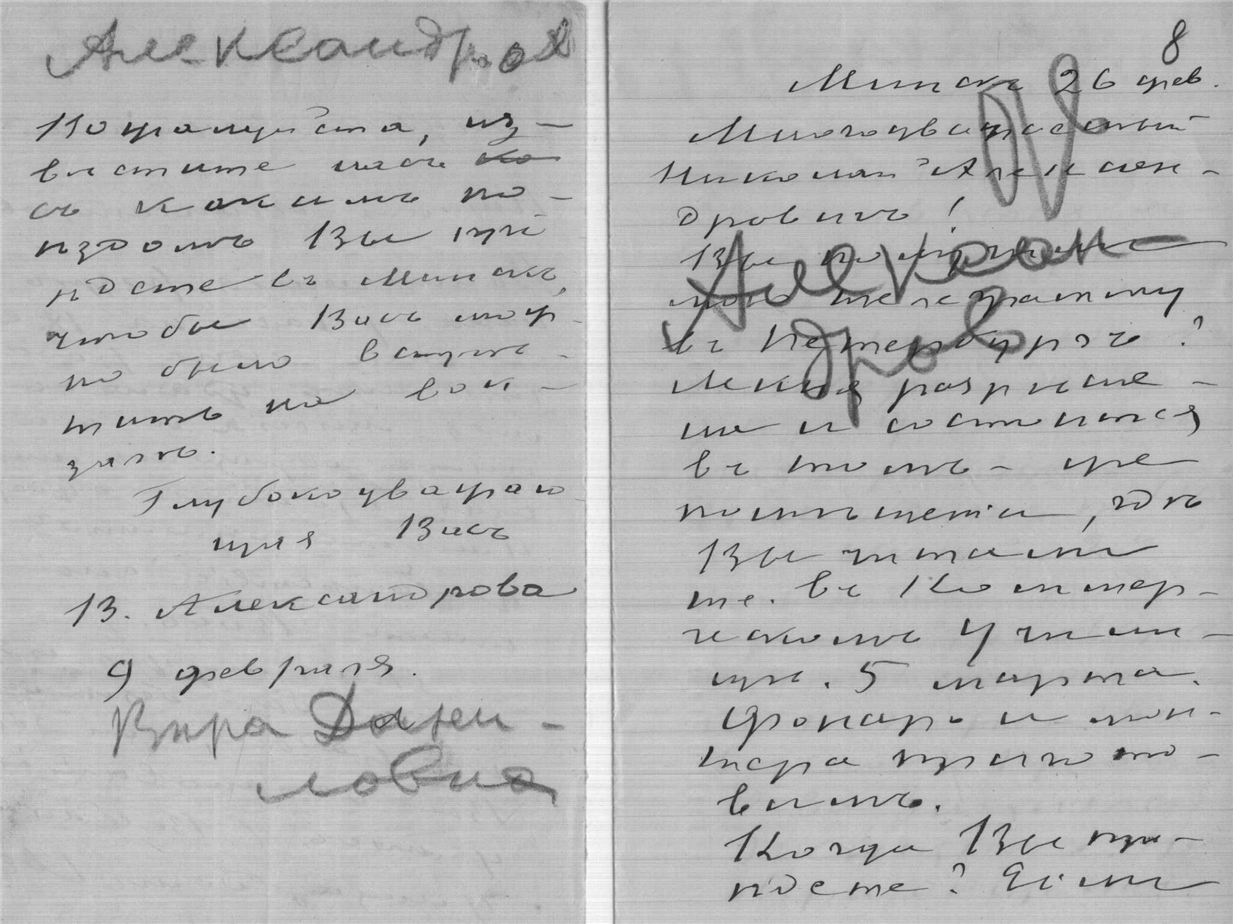 Александров
Пожалуйста, из-
вѣстите насъ ко
съ какимъ по-
ѣздомъ Вы прі-
ѣдете въ Минскъ,
чтобы Васъ мож-
но было встрѣ-
тить на вок-
залѣ.
Глубокоуважаю-
щая Васъ
В. Александрова
9 февраля.
Вѣра Дани-
ловна
8
Минскъ 26 фев.
Многоуважаемый
Николай Алексан-
дровичъ!
Александров
Вы получили
мою телеграмму
въ Петербургѣ?
Лекція разрѣше-
на и состоится
въ томъ-же
помѣщеніи, гдѣ
Вы читали
т.е. въ Коммер-
ческомъ Учили-
щѣ. 5 марта.
Фонарь и мон-
тера пригото-
вимъ.
Когда Вы прі-
ѣдете? Если